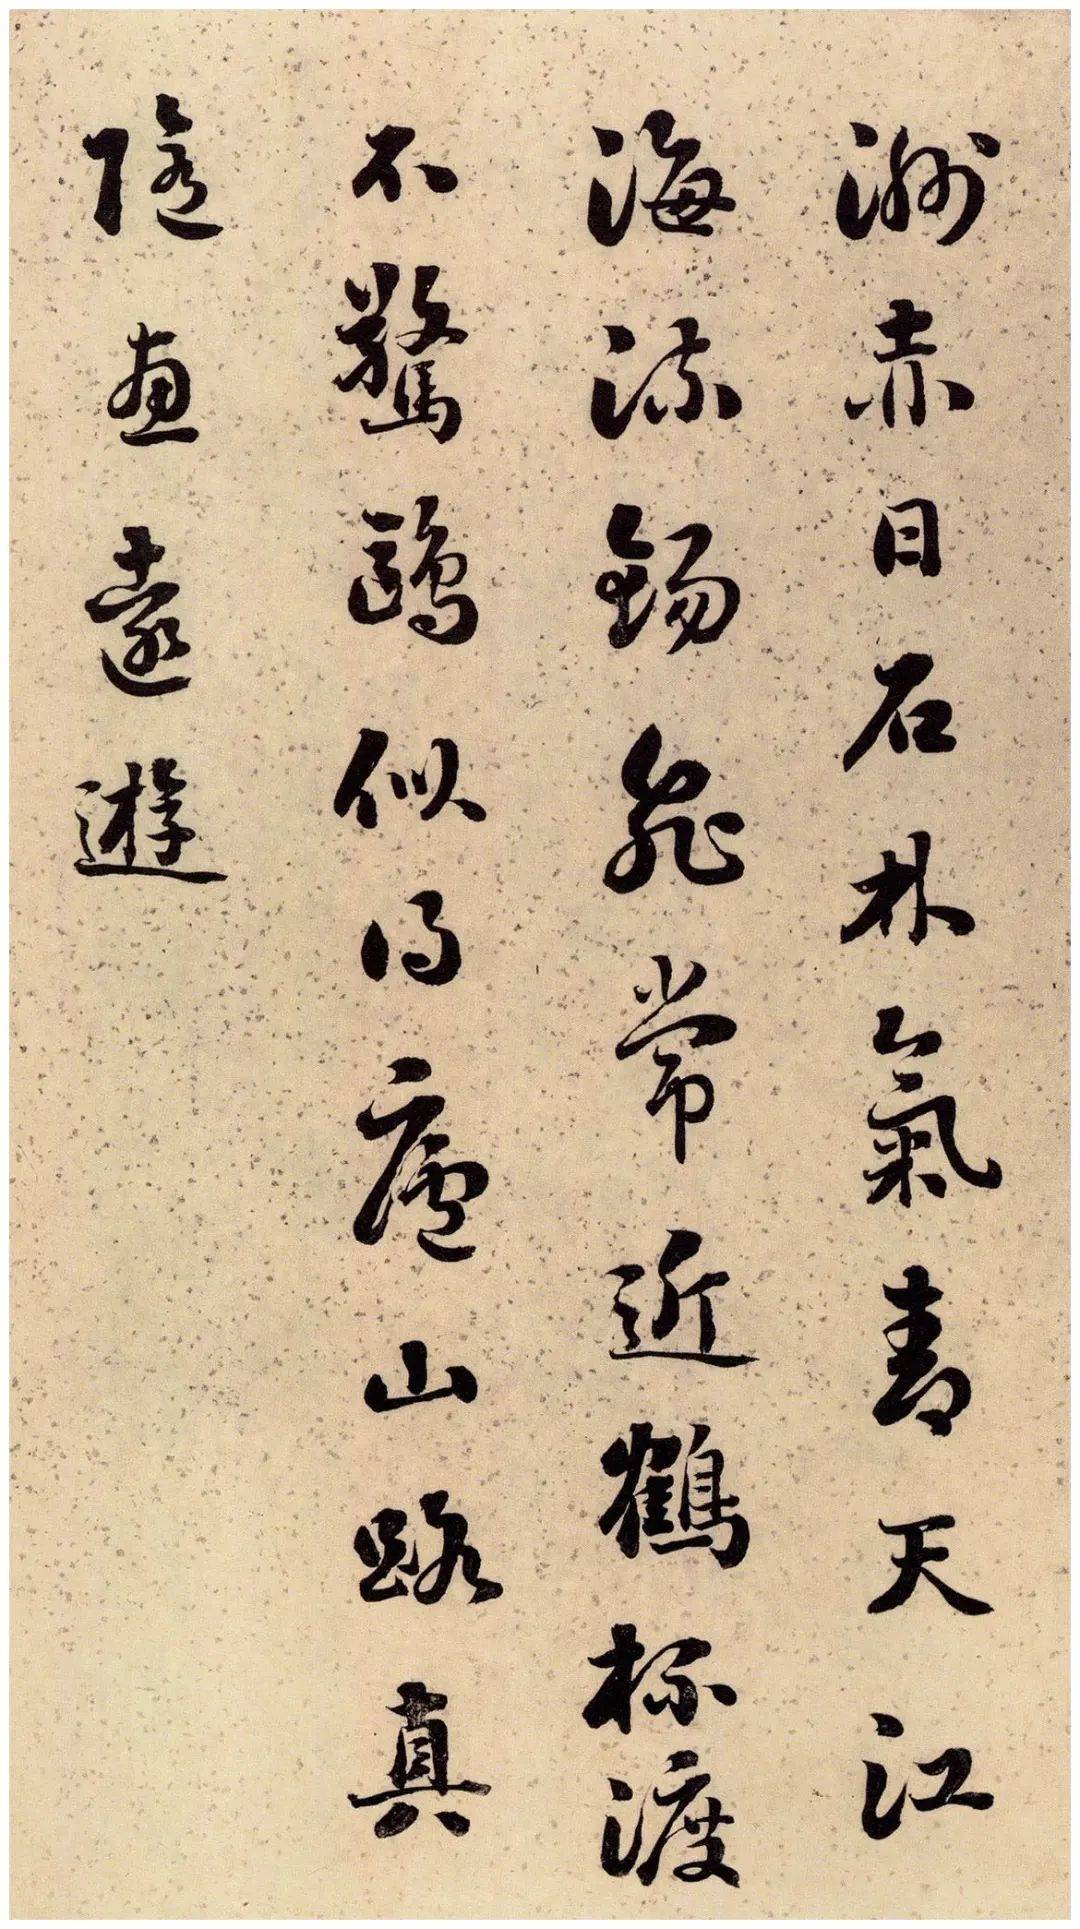 洲赤日石林氣青天江
海流錫飛常近鶴杯渡
不驚鷗似得廬山路真
隨惠遠遊